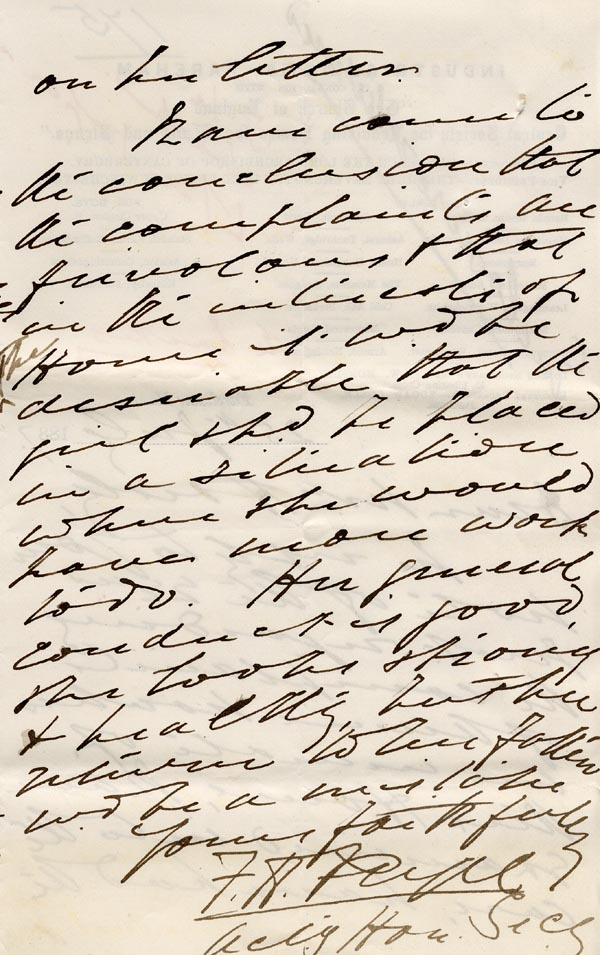 on her letter.
I have come to
the conclusion that
the complaints are
frivolous & that
in the interests of
the
Home it wd be
desirable that the
girl shd be placed
in a situation
where she would
have more work
to do. Her general
conduct is good,
she looks strong
& healthy, but her
return to her father
wd be a mistake
Yours faithfully
F. H.
Actg Hon. Secy